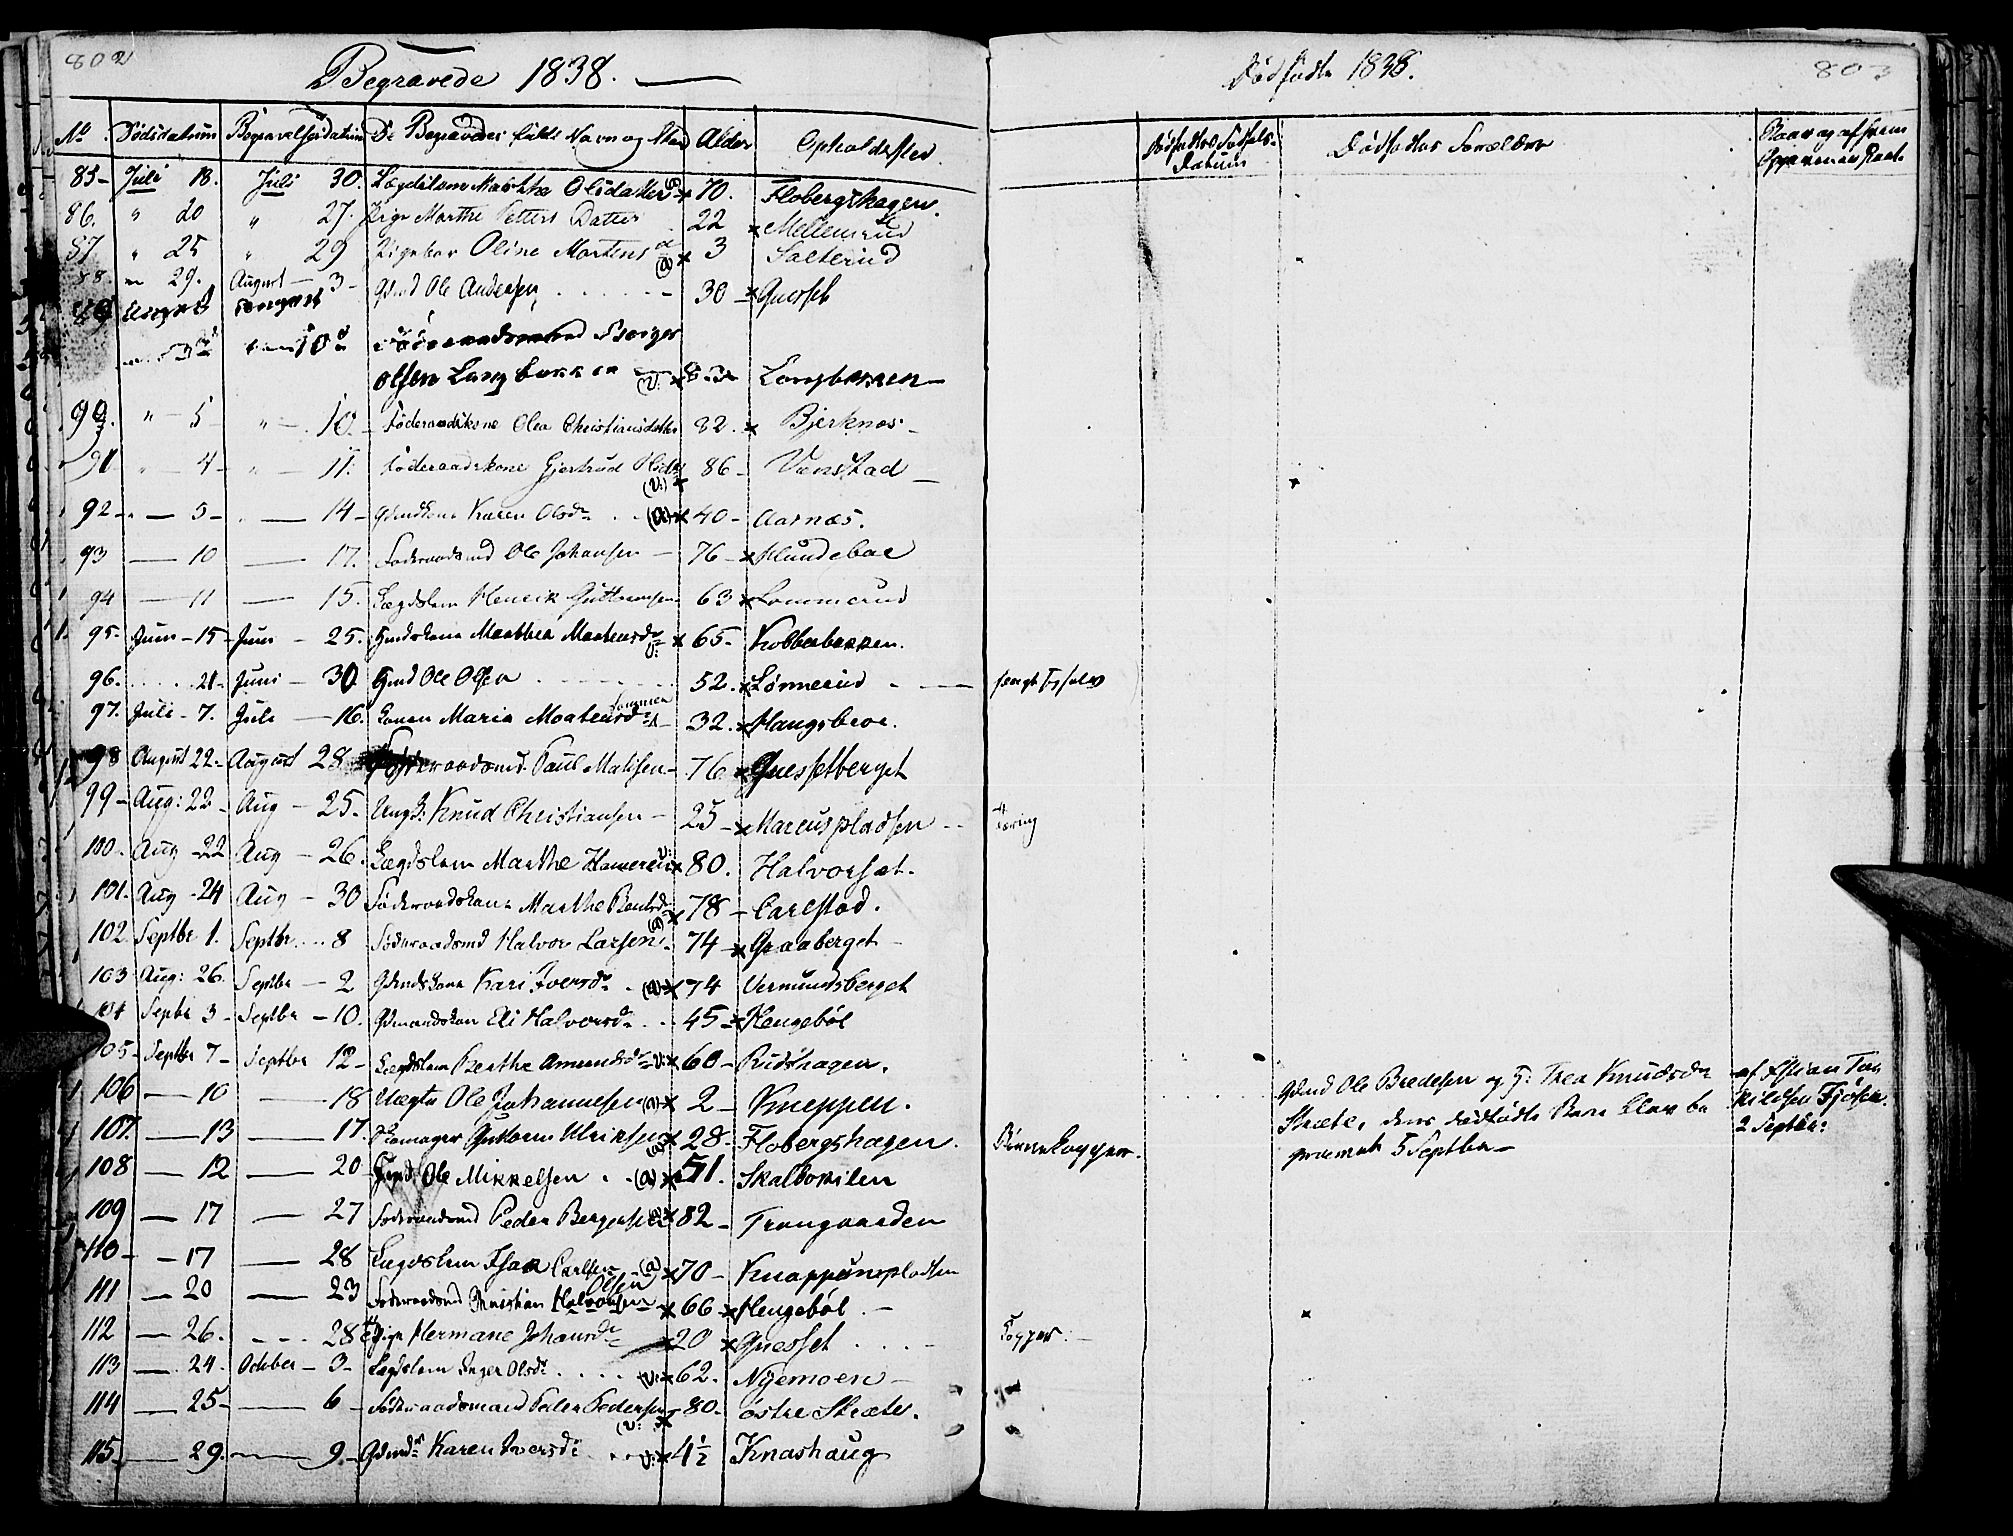 802
Begravede 1838.
No Dødsdatum Begravelsesdatum De Begravedes fulde Navn og Stand Alder Opholdssted.
85- Juli 18. Juli 30. Lægdslem Martha Olsdatter 70. Flobergshagen.
86. " 20 " 27. Pige Marthe Petters Datter 22 Mellemrud
87 " 25 " 29 Pigebar Oline Martens (a) 3 Sæterud
88. " 29. August 3- Gmd Ole Andersen 30 Guesset
89 August August
3 10 Føderaadsmand Børger
Olsen Langbakken (v: 83 Langbakken
90. " 5 " 10. Føderaadskone Olea Christiansdatter 82. Bjerknæs
91 " 4 " 11. Føderaadskone Gjertrud Olsdr (v:) 86 Vanstad
92 5 14 Gmdkone Karen Olsdr (a) 40 Aarnæs.
93 10 17. Føderaadsmd Ole Johansen 76 Hundeboe
94 11 15. Lægdslem Henrik Guttormsen 63 Lommerud
95. Juni 15 Juni 25. Gmdskone Marthea Martensdr v: 65. Kobberbakken.
96. 21 Juni 30 Gmd Ole Olsen 52. Lønnerud
97. Juli 7. Juli 16. Konen Maria Mortensdr 32. Haugsboe.
98 August 22. August 28 Føderaadsmd. Paul Matisen 76 Guessetberget
99 Aug: 22 Aug 25. Ungk: Knud Christiansen 25 Marcuspladsen
100. Aug 22 Aug 26. Lægdslem Marthe Hamerud v: 80. Halvorset.
101. Aug 24 Aug 30 Føderaadskone Marthe Bentsdr (a) 78 Carlstad.
102 Septbr 1. Septbr 8 Føderaadsmd Halvor Larsen 74 Graaberget
103 Aug: 26. Septbr 2 Gmdskone Kari Iversdr (a) 74 Vermundsberget
104 Septbr 3 Septbr 10. Gmandskone Eli Halvorsdr 45 Hengebøl
105 Septbr 7 Septbr 12 Lægdslem Berthe Amundsdr v: 60 Rudshagen.
106 10 18 Ole Johannesen (a) 2 Kneppen.
107. 13 17. Skomager Guttorm Ulriksen (a) 28. Flobergshagen.
108 12 20 Gmd Ole Mikkelsen (a) 51. Skalbokilen
109 17 27 Føderaadsmd Peder Bergersen 82 Trangaarden
110 17 28 Lægdslem Isak Carlsen (a) 70 Knappumpladsen
Olsen
111 20 23 Føderaadsmd Christian Halvorsen 66 Hengebøl.
112 26. 28 Pige Hermane Johansdr 20 Guesset
113 24. October 3 Lægdslem Inger Olsdr (v: 62. Nyemoen
114 25 6 Føderaadsmand Peder Pedersen (v: 80. østre Skræte.
115. 29. 9. Karen Iversdr v: 4½ Knashaug
Dødfødte 1838.
803
Dødfødtes Fødsels-
Datum
Dødfødtes Forældre
Børnekopper.
Gmd Ole Bredesen og H: Thea Knudsdr
Skræte, deres dødfødte Barn blev be
gravet 5 Septbr
af Kristian Tor
kildsen Fjøsen.
2 Septbr:
Kopper.